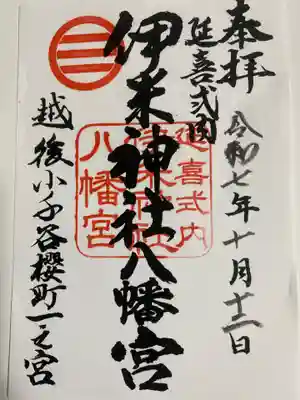 奉拝
令和七年十月十二日
延喜式内
伊米神社八幡宮
越後小千谷櫻町一之宮
延喜式内
伊米神社
八幡宮